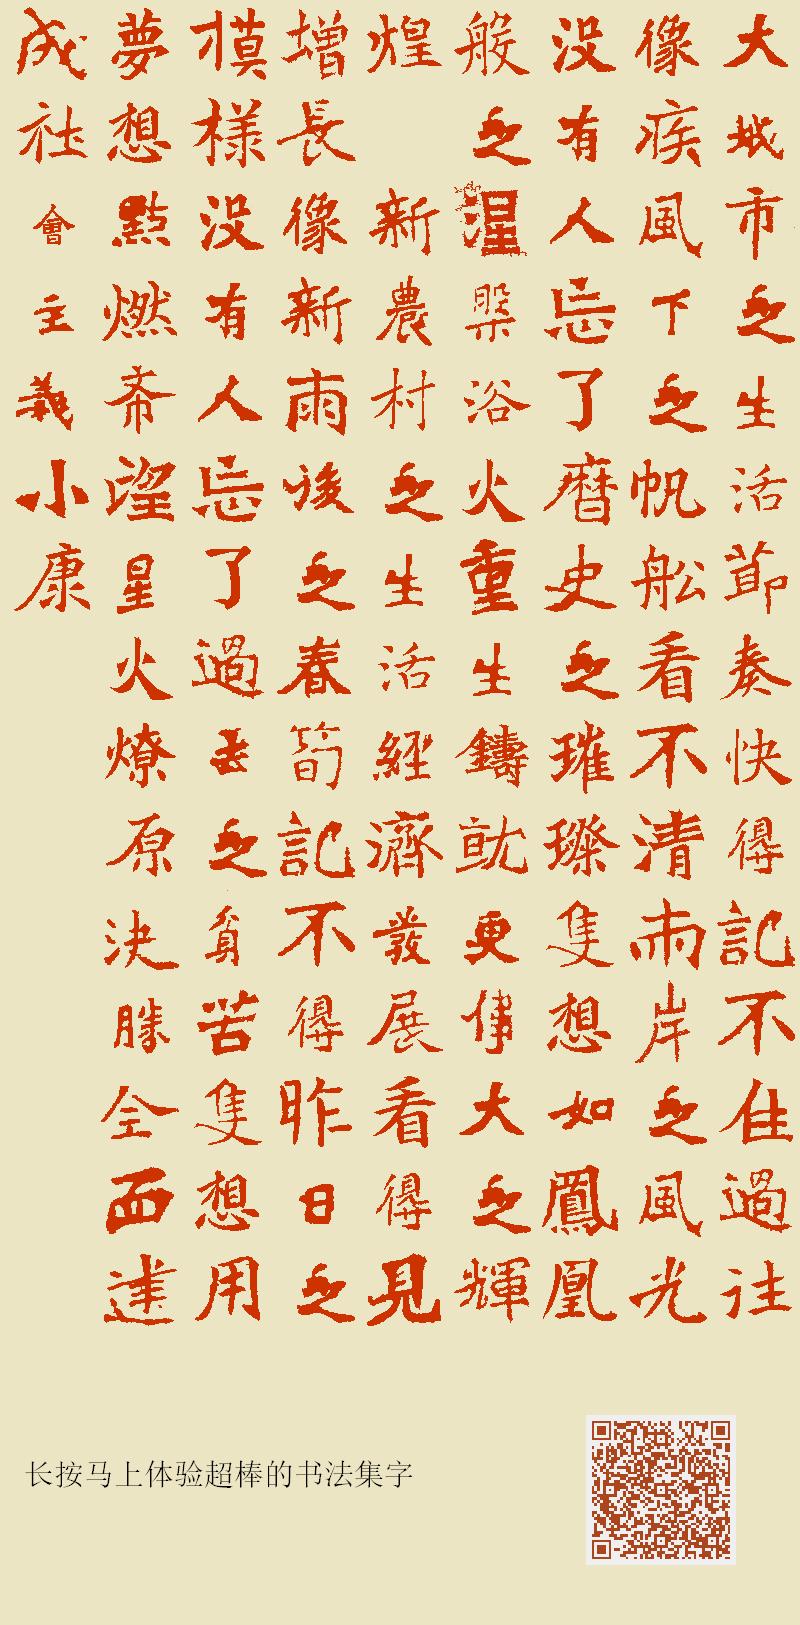 大城市之生活節奏快得記不住過往
像疾風下之帆船看不清兩岸之風光
没有人忘了曆史之璀璨隻想如鳳凰
般之涅槃浴火重生鑄就更偉大之輝
煌 新農村之生活經濟發展看得見
增長像新雨後之春筍記不得昨日之
模樣没有人忘了過去之貧苦隻想用
夢想點燃希望星火燎原決勝全面建
成社會主義小康
长按马上体验超棒的书法集字